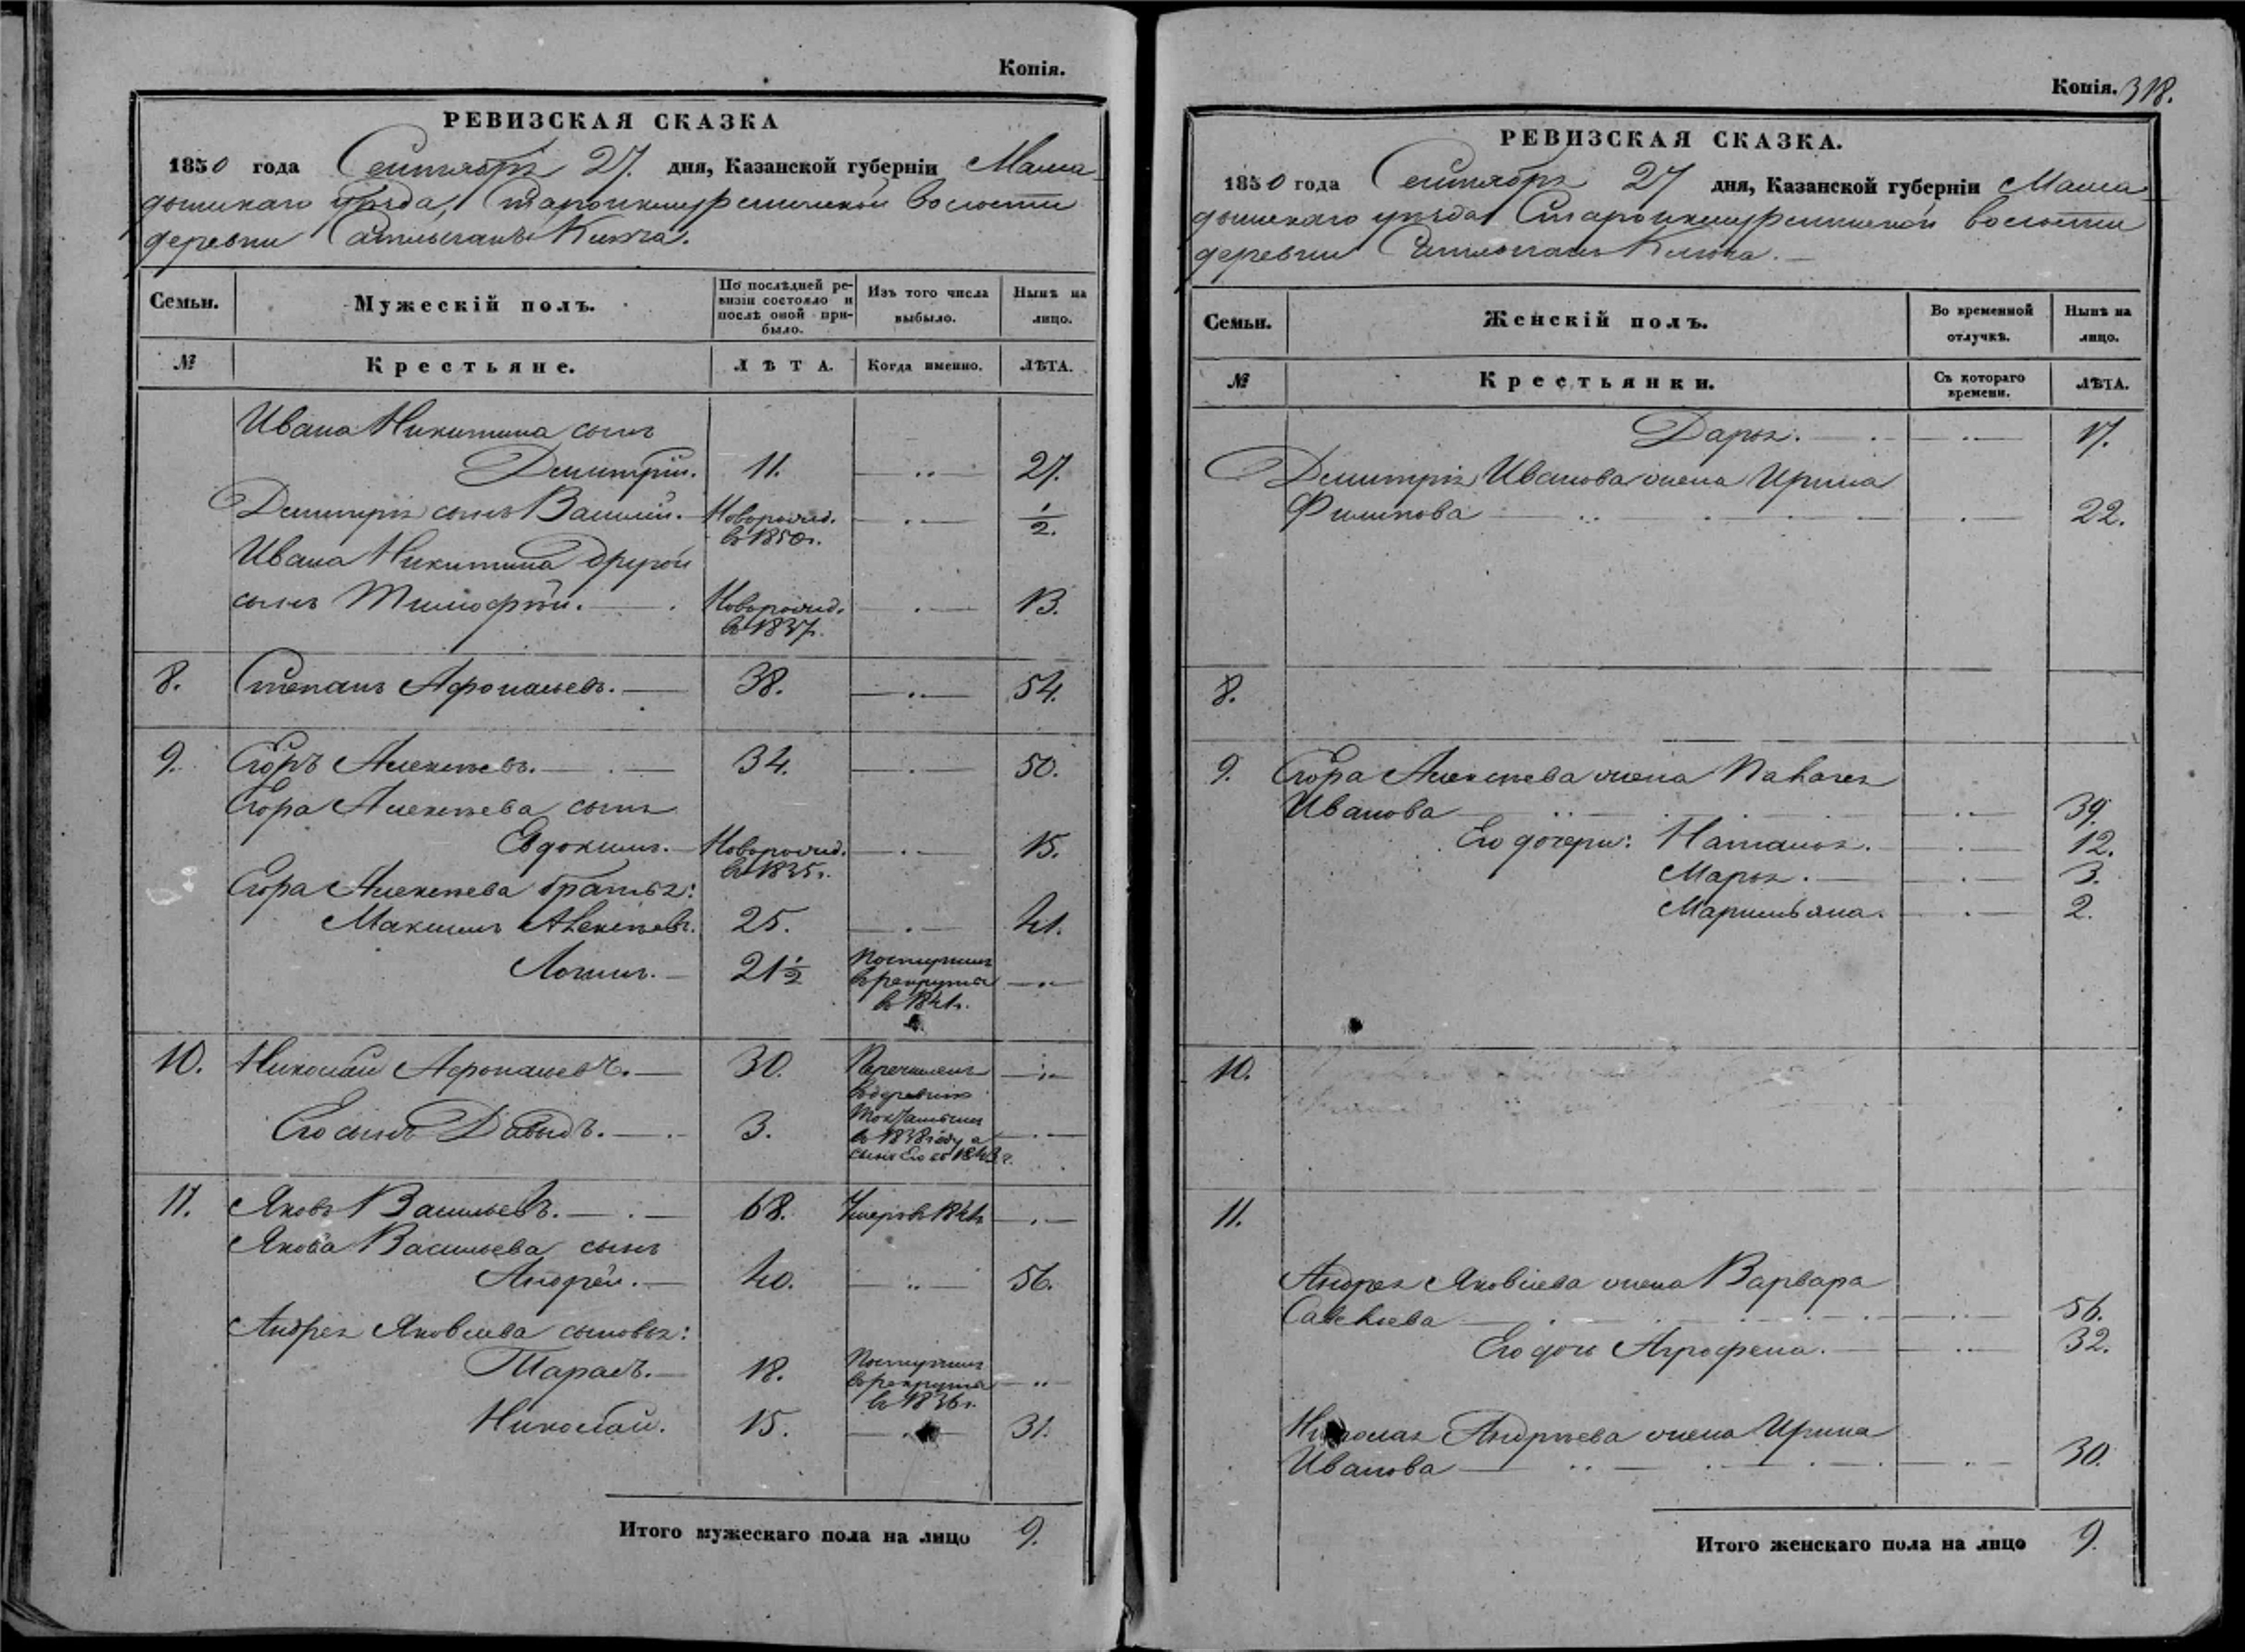 Копія.
РЕВИЗСКАЯ СКАЗКА
1850 года Сентября 27. дня, Казанской губерніи Мама-
дышскаго уѣзда, Староикшурминской волости
деревни Сатлыганъ Ключа.
Семьи.
Мужескій полъ.
По послѣдней ре-
визіи состояло и
послѣ оной при-
было.
Изъ того числа
выбыло.
Нынѣ на
лицо.
№
Крестьяне.
ЛѢТА.
Когда именно.
ЛѢТА.
Ивана Никитина сынъ
Димитрій. 11. 27.
Димитрія сынъ Василій. Новорожд. 1/2.
въ 1850г.
Ивана Никитина другой
сынъ Тимофѣй. Новорожд. 13.
въ 1837.
8. Степанъ Афонасьевъ. 38. 54.
9. Егоръ Алексѣевъ. 34. 50.
Егора Алексѣева сынъ
Евдокимъ. Новорожд. 15.
въ 1835г.
Егора Алексѣева братья:
Максимъ Алексѣевъ. 25. 41.
Логинъ. 21 1/2 Поступилъ
въ рекруты
въ 1841г.
10. Николай Афонасьевъ. 30. Перечисленъ
въ деревню
Его сынъ Давыдъ. 3.
въ 1838 году а
сынъ Его въ 1843 г.
11. Яковъ Васильевъ. 68. Умеръ въ 1841г.
Якова Васильева сынъ
Андрей. 40. 56.
Андрея Яковлева сыновья:
Тарасъ. 18. Поступилъ
въ рекруты
въ 1836г.
Николай. 15. 31.
Итого мужескаго пола на лицо 9.
Копія. 318.
РЕВИЗСКАЯ СКАЗКА.
1850 года Сентября 27 дня, Казанской губерніи Мама-
дышскаго уѣзда Староикшурминской волости
деревни Сатлыганъ Ключа.
Семьи.
Женскій полъ.
Во временной
отлучкѣ.
Нынѣ на
лицо.
№
Крестьянки.
Съ котораго
времени.
ЛѢТА.
Дарья. 17.
Димитрія Иванова жена Ирина
Филипова 22.
8.
9. Егора Алексѣева жена Палагея
Иванова 39.
Его дочери: Наталья. 12.
Марья. 3.
Маримьяна. 2.
10.
11.
Андрея Яковлева жена Варвара
Савельева 56.
Его дочь Агрофена. 32.
Николая Андрѣева жена Ирина
Иванова 30.
Итого женскаго пола на лицо 9.